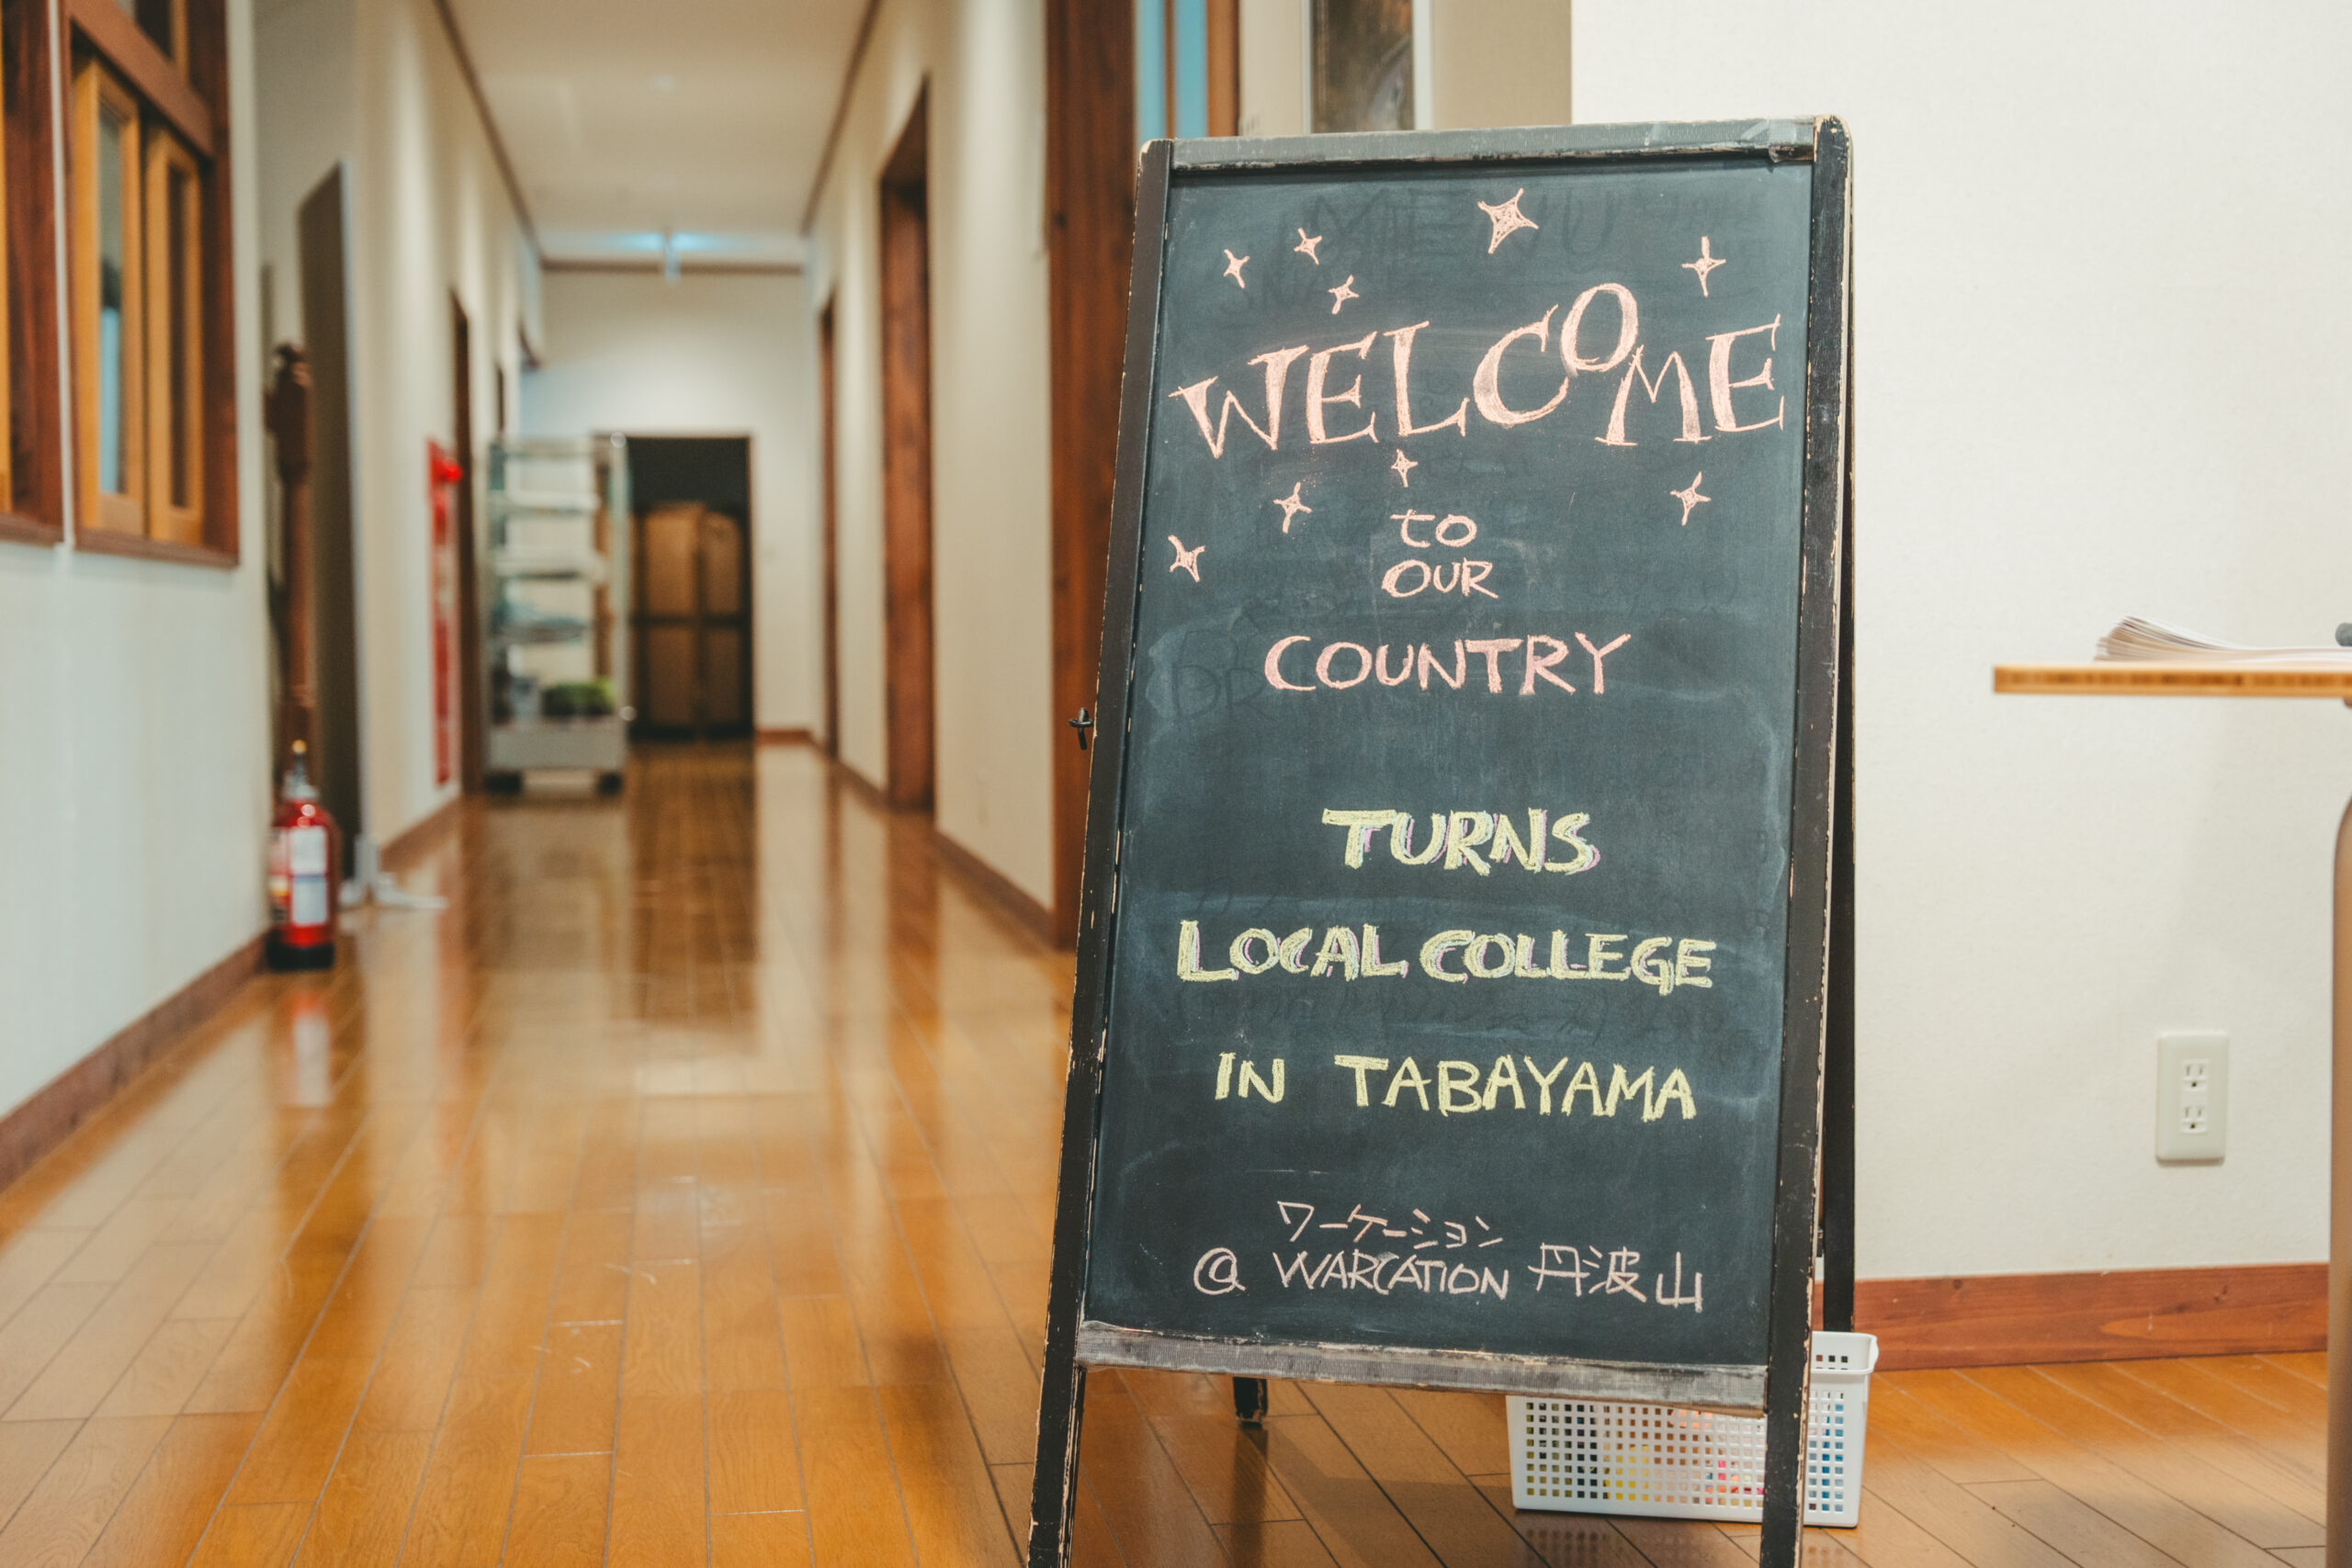 WELCOME
to
OUR
COUNTRY
TURNS
LOCAL COLLEGE
IN TABAYAMA
ワーケーション
@ WARCATION 丹波山